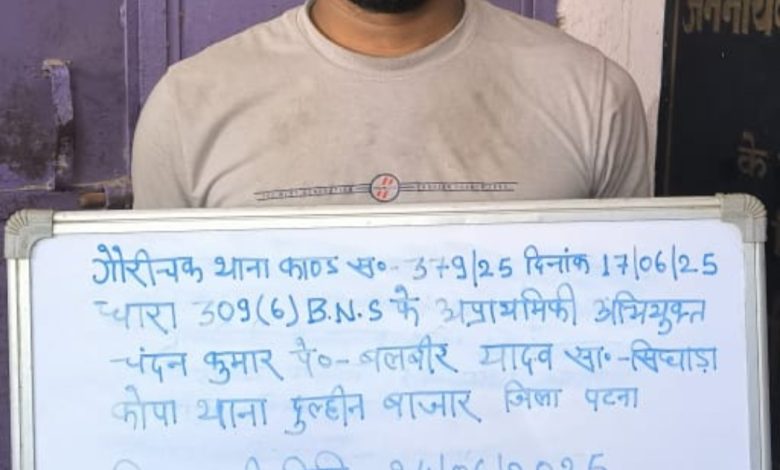 जननाय
के
गौरीचक थाना काण्ड सं०- 379/25 दिनांक 17/06/25
धारा 309(6) B.N.S के अप्राथमिकी अभियुक्त
चंदन कुमार पे०- बलबीर यादव सा०-सिंघाड़ा
कोपा थाना दुल्हीन बाजार जिला पटना